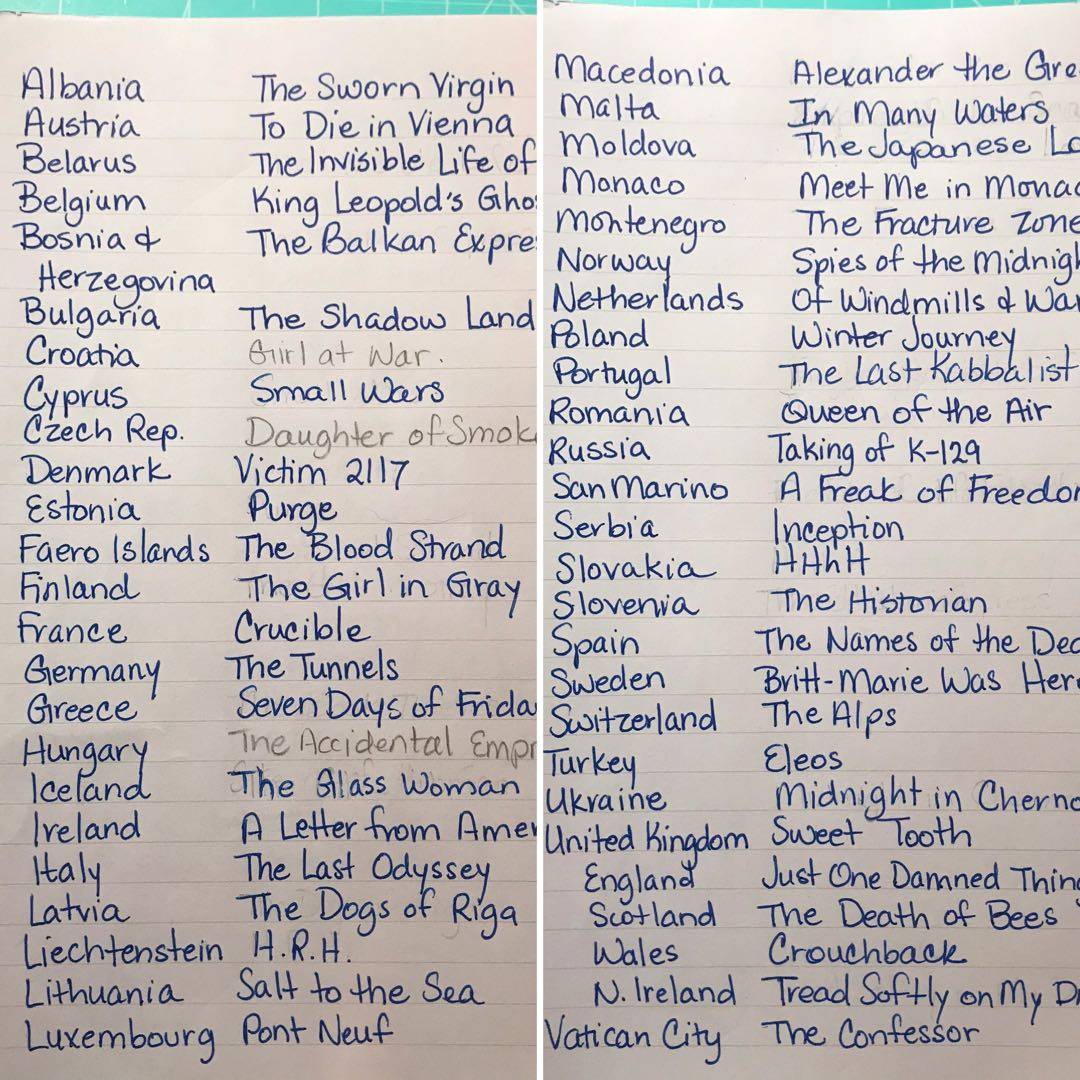 Albania The Sworn Virgin
Austria To Die in Vienna
Belarus The Invisible Life of
Belgium King Leopold's Gho
Bosnia & The Balkan Expre
Herzegovina
Bulgaria The Shadow Land
Croatia Girl at War.
Cyprus Small Wars
Czech Rep. Daughter of Smok
Denmark Victim 2117
Estonia Purge
Faero Islands The Blood Strand
Finland The Girl in Gray
France Crucible
Germany The Tunnels
Greece Seven Days of Frida
Hungary The Accidental Empr
Iceland The Glass Woman
Ireland A Letter from Amer
Italy The Last Odyssey
Latvia The Dogs of Riga
Liechtenstein H.R.H.
Lithuania Salt to the Sea
Luxembourg Pont Neuf
Macedonia Alexander the Gre
Malta In Many Waters
Moldova The Japanese Lo
Monaco Meet Me in Monac
Montenegro The Fracture Zone
Norway Spies of the Midnigh
Netherlands Of Windmills & War
Poland Winter Journey
Portugal The Last Kabbalist
Romania Queen of the Air
Russia Taking of K-129
San Marino A Freak of Freedom
Serbia Inception
Slovakia HHhH
Slovenia The Historian
Spain The Names of the Dea
Sweden Britt-Marie Was Here
Switzerland The Alps
Turkey Eleos
Ukraine Midnight in Cherno
United Kingdom Sweet Tooth
England Just One Damned Thing
Scotland The Death of Bees
Wales Crouchback
N. Ireland Tread Softly on My Dr
Vatican City The Confessor